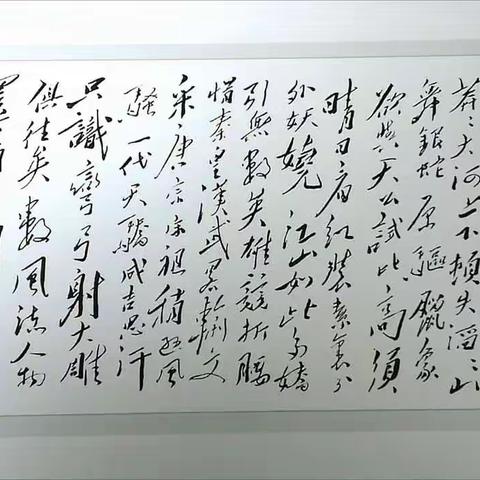 莽々大河上下頓失滔々山
舞銀蛇原驅臘象
欲與天公試比高須
晴日看紅裝素裹分
外妖嬈江山如此多嬌
引無數英雄競折腰
惜秦皇漢武略輸文
采唐宗宋祖稍遜風
騷一代天驕成吉思汗
只識彎弓射大雕
俱往矣數風流人物